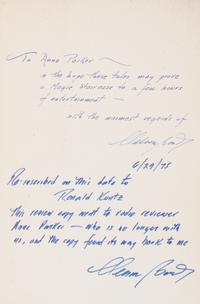 To Anne Parker —
in the hope these tales may prove
a Magic Carcasse to a few hours
of entertainment —
with the warmest regards of
Glenn Lord
6/29/75
Re-inscribed on this date to
Ronald Kuntz
this review copy sent to radio reviewer
Anne Parker — who is no longer with
us, and the copy found its way back to me
Glenn Lord